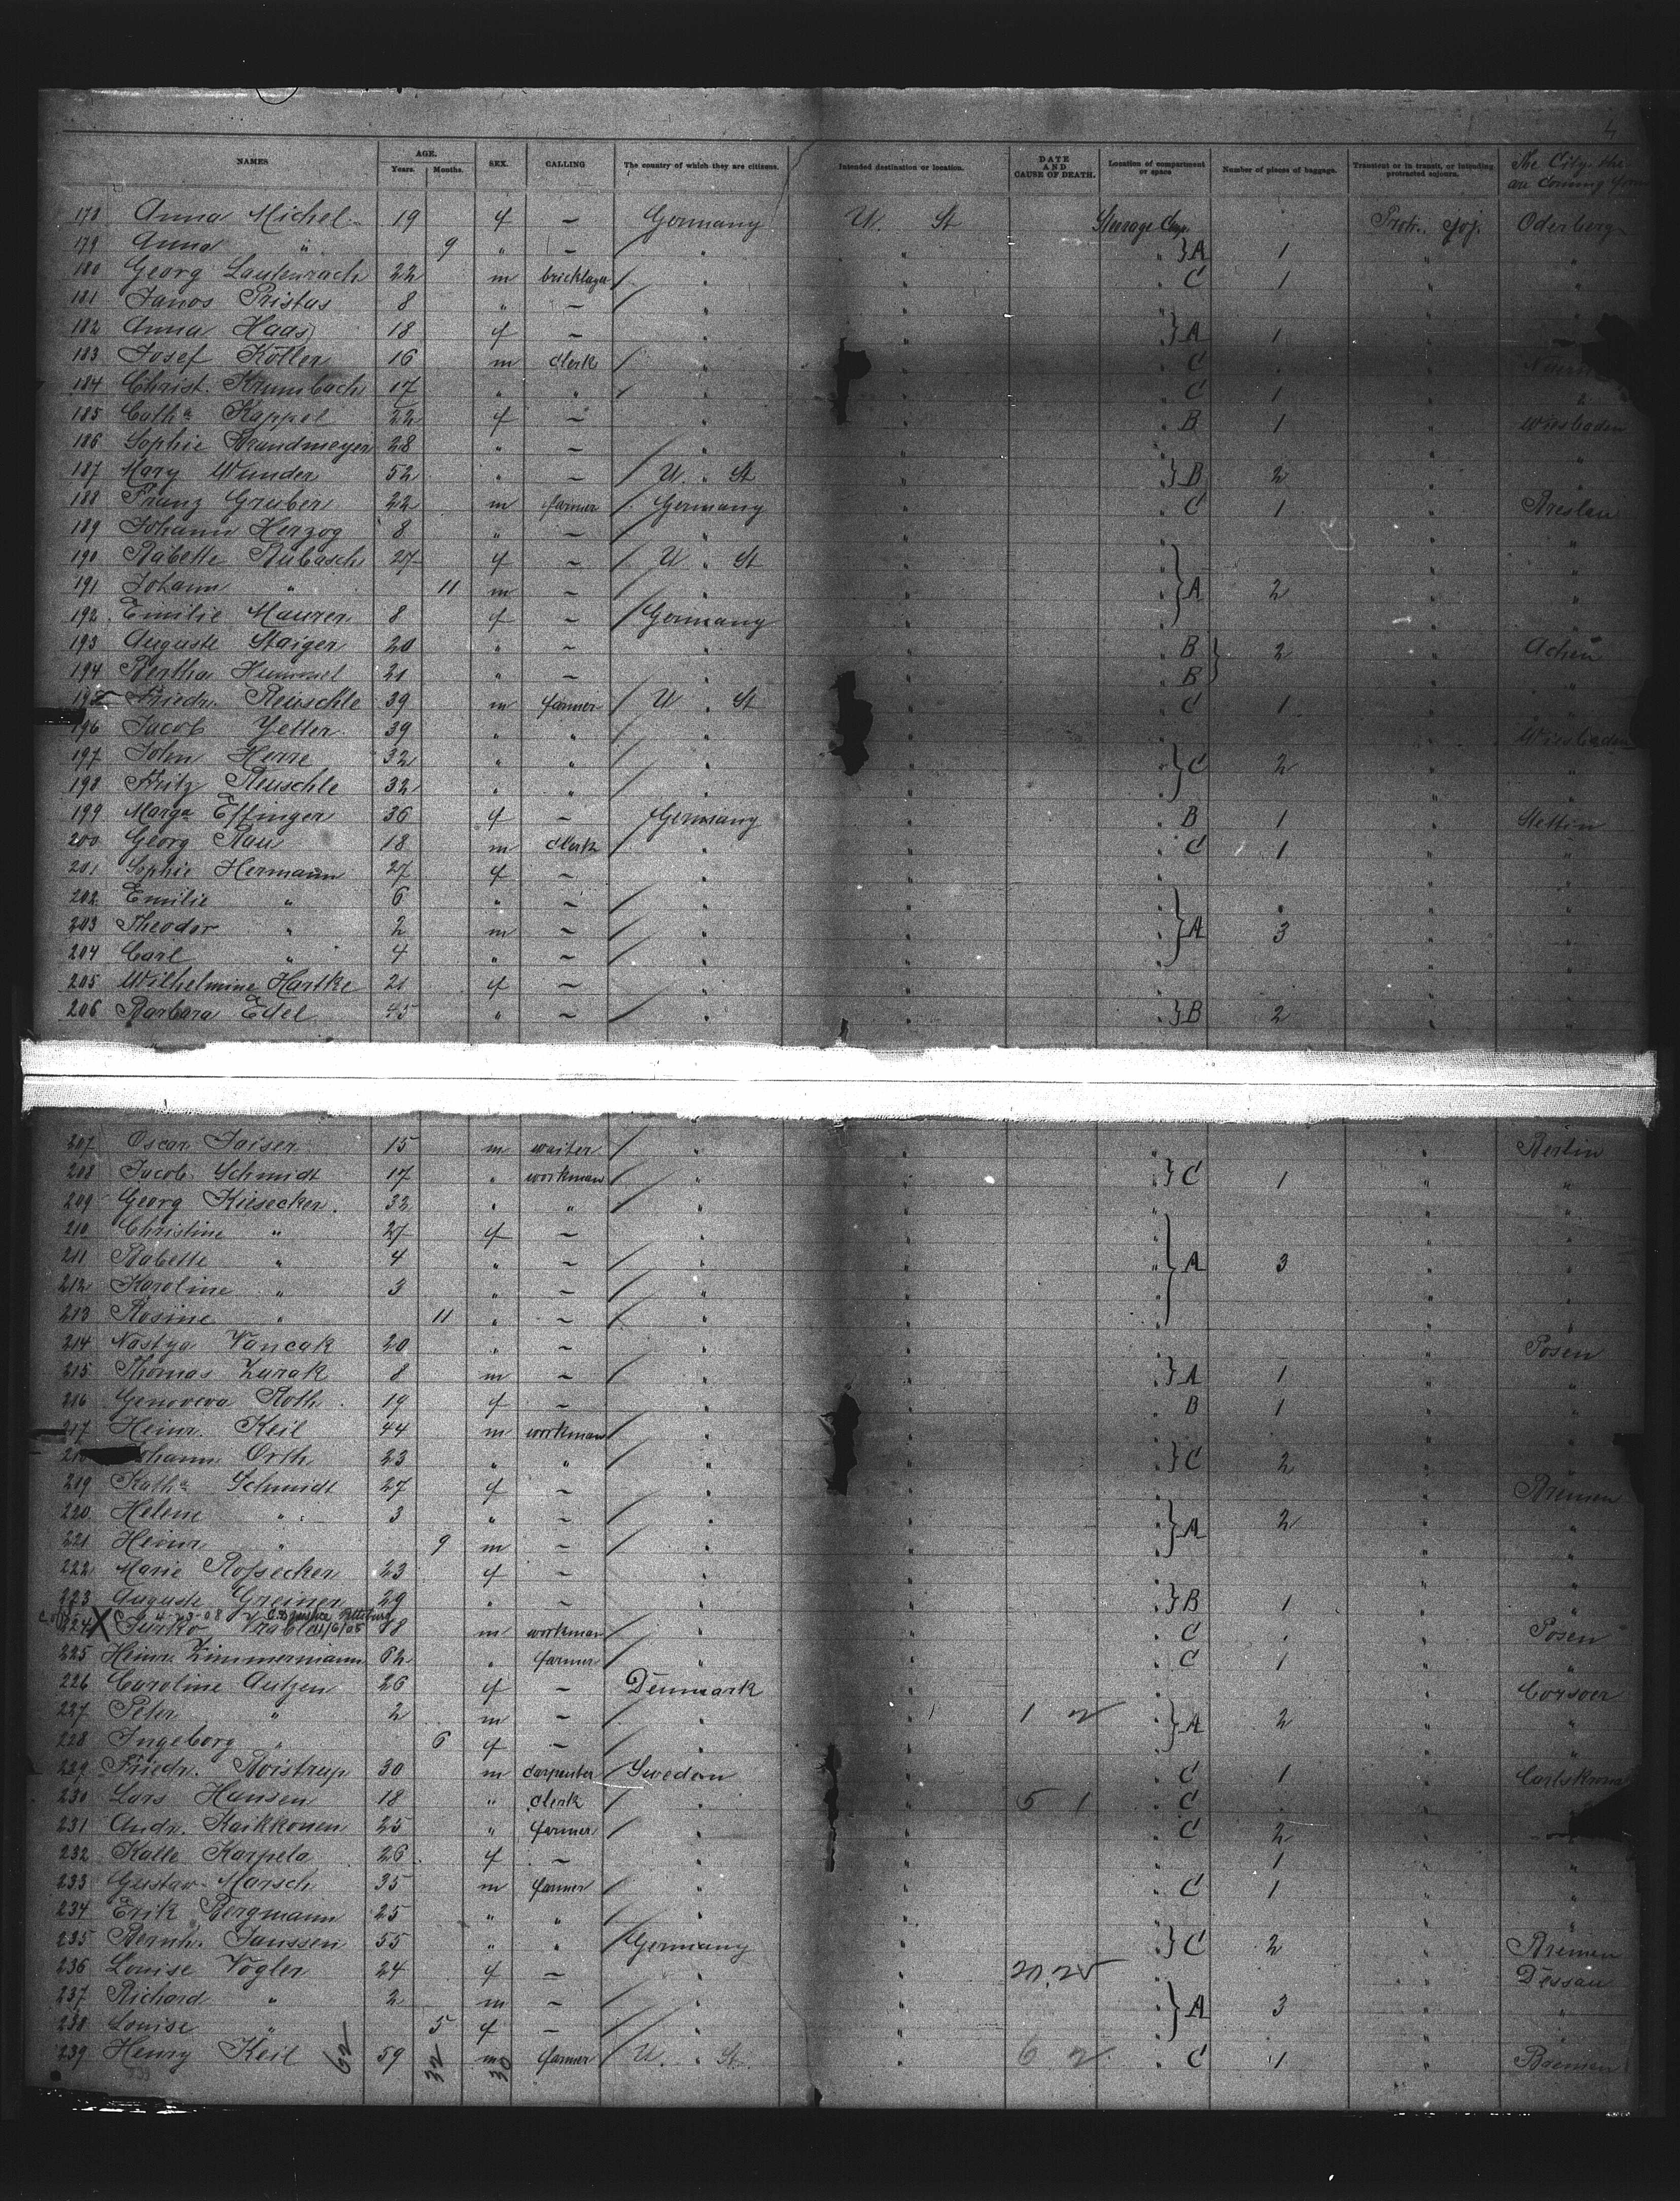 4
NAMES AGE. Years. Months. SEX. CALLING The country of which they are citizens. Intended destination or location. DATE AND CAUSE OF DEATH. Location of compartment or space Number of pieces of baggage. Transient or in transit, or intending protracted sojourn. The City they are coming from
178 Anna Michel 19 f — Germany U. St Steerage Comp. Protr. Soj. Oderberg
179 Anna " 9 " — " " " } A 1 " "
180 Georg Lautenrach 22 m bricklayer / " " " C 1 " "
181 Janos Pristas 8 " — / " " " " "
182 Anna Haas 18 f — " " " } A 1 "
183 Josef Köller 16 m clerk / " " " C " "
184 Christ. Krumbach 17 " " / " " " C 1 " "
185 Catha Kappel 22 f — " " " B 1 " Wiesbaden
186 Sophie Brandmeyer 28 " — / " " " " "
187 Mary Wunder 52 " — / U. St " " } B 2 " "
188 Franz Gruber 22 m farmer / Germany " " C 1 " Breslau
189 Johann Herzog 8 " — / " " " " "
190 Babette Rubasch 27 f — / U. St " " " "
191 Johann " 11 m — / " " " } A 2 " "
192 Emilie Maurer 8 f — / Germany " " " "
193 Auguste Staiger 20 " — " " " B } 2 " Achen
194 Bertha Hummel 21 " — " " " B " "
195 Friedr. Reuschle 39 m farmer / U. St " " C 1 " "
196 Jacob Yetter 39 " " / " " " " Wiesbaden
197 John Herre 32 " " / " " " } C 2 " "
198 Fritz Reuschle 32 " " / " " " " "
199 Marga Effinger 36 f — Germany " " B 1 " Stettin
200 Georg Rau 18 m clerk / " " " C 1 " "
201 Sophie Hermann 27 f — " " " " "
202 Emilie " 6 " — / " " " " "
203 Theodor " 2 m — / " " " } A 3 " "
204 Carl " 4 " — / " " " " "
205 Wilhelmine Hartke 21 f — " " " " "
206 Barbara Edel 45 " — / " " " } B 2 " "
207 Oscar Jaiser 15 m waiter / " " " " Berlin
208 Jacob Schmidt 17 " workman / " " " } C 1 " "
209 Georg Kiesecker 32 " " / " " " " "
210 Christine " 27 f — " " " " "
211 Babette " 4 " — / " " " } A 3 " "
212 Karoline " 3 " — / " " " " "
213 Rosine " 11 " — / " " " "
214 Nastya Vancak 20 " — " " " " Posen
215 Thomas Zurak 8 m — / " " " } A 1 " "
216 Genoveva Roth 19 f — " " " B 1 " "
217 Heinr. Keil 44 m workman / " " " " "
hann Orth 23 " " / " " " } C 2 " "
219 Katha Schmidt 27 f — " " " " Bremen
220 Helene " 3 " — / " " " } A 2 " "
221 Heinr " 9 m — / " " " " "
222 Marie Rossecker 23 f — " " " "
223 Auguste Greiner 29 " — " " " } B 1 " "
4-23-08
224 X Jurko 11/6/05 18 m workman / " " " C " " Posen
225 Heinr. Zimmermann 62 " farmer / " " " C 1 " "
226 Caroline Autzen 26 f — Denmark " " " Corsoer
227 Peter " 2 m — / " " 1 2 " } A 2 " "
228 Ingeborg " 6 f — / " " " " "
229 Friedr. Roistrup 30 m carpenter / Sweden " " C 1 " Carlskrona
230 Lars Hansen 18 " clerk / " " 5 1 " C "
231 Andr. Kaikkonen 25 " farmer / " " " C 2 "
232 Kalle Karpela 26 f — " " " 1 " "
233 Gustav Marsch 35 m farmer / " " " C 1 " "
234 Erik Bergmann 25 " " / " " " " "
235 Bernh. Janssen 55 " " / Germany " " } C 2 " Bremen
236 Louise Vogler 24 f — " " " " Dessau
237 Richard " 2 m — / " " " } A 3 " "
238 Louise " 5 f — / " " " "
239 Henry Keil 59 m farmer / U. St. " 6 2 " C 1 " Bremen
62 32 30